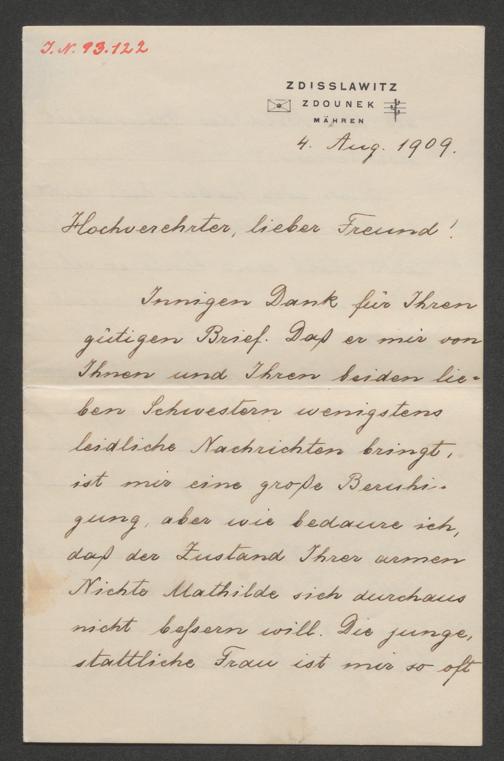 J. N. 93.122
ZDISSLAWITZ
ZDOUNEK
MÄHREN
4. Aug. 1909.
Hochverehrter, lieber Freund!
Innigen Dank für Ihren
gütigen Brief. Daß er mir von
Ihnen und Ihren beiden lie-
ben Schwestern wenigstens
leidliche Nachrichten bringt,
ist mir eine große Beruhi-
gung, aber wie bedaure ich,
daß der Zustand Ihrer armen
Nichte Mathilde sich durchaus
nicht beßern will. Die junge,
stattliche Frau ist mir so oft